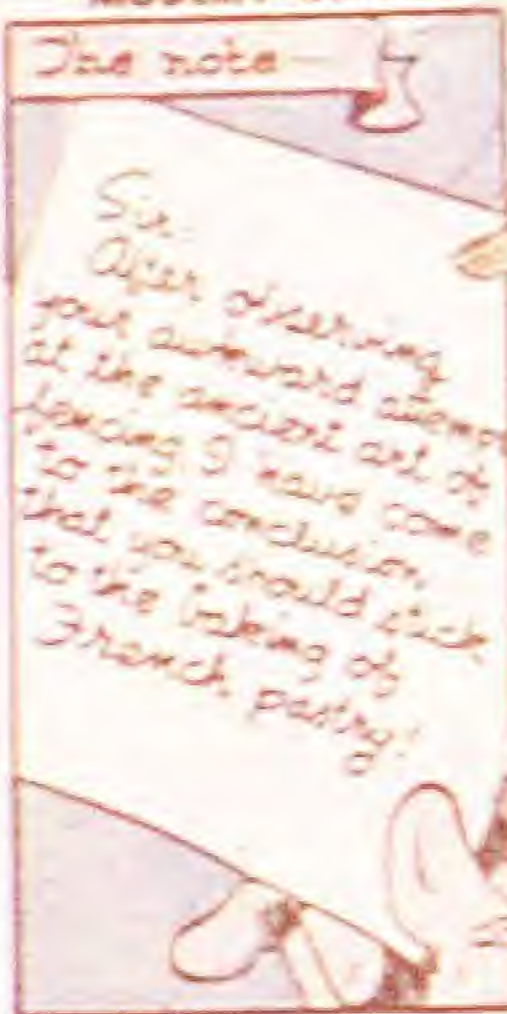 The note—
Sir:
After observing
your awkward attempt
at the ancient art of
fencing, I have come
to the conclusion,
that you should stick
to the baking of
French pastry!